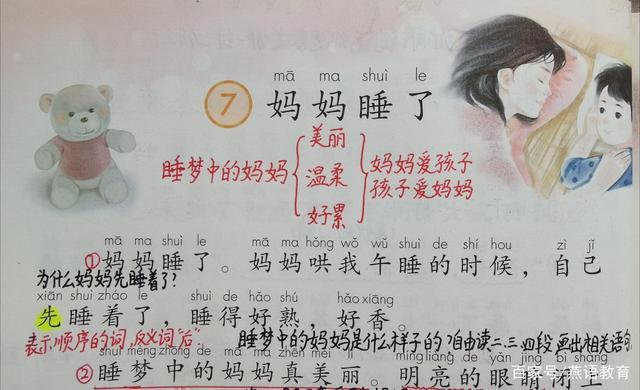 mā ma shuì le
7 妈妈睡了
美丽
睡梦中的妈妈 温柔 妈妈爱孩子
孩子爱妈妈
好累
mā ma shuì le mā ma hǒng wǒ wǔ shuì de shí hou zì jǐ
①妈妈睡了。妈妈哄我午睡的时候,自己
为什么妈妈先睡着了?
xiān shuì zháo le shuì de hǎo shú hǎo xiāng
先睡着了,睡得好熟,好香。
表示顺序的词,反义词“后”。 睡梦中的妈妈是什么样子的?自由读二.三.四段画出相关语句
shuì mèng zhōng de mā ma zhēn měi lì míng liàng de yǎn jīng bì shang
②睡梦中的妈妈真美丽。明亮的眼睛
百家号/燕语教育